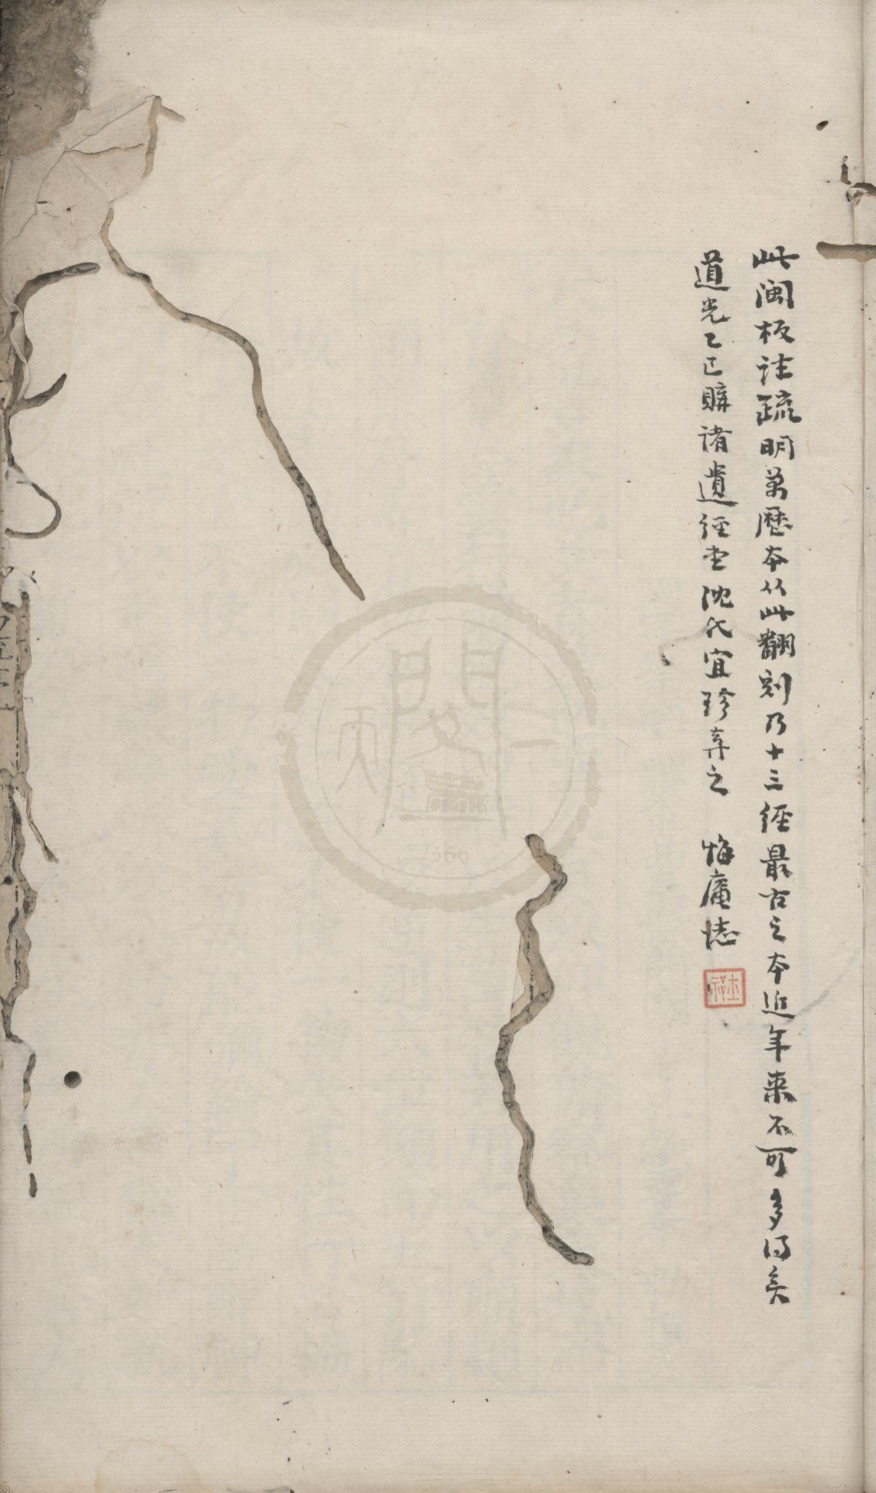 此闽板注疏明萬歷本从此翻刻乃十三經最古之本近年来不可多得矣
道光乙巳購諸遺經堂沈氏宜珍弆之 悔庵誌
天一閣
1566